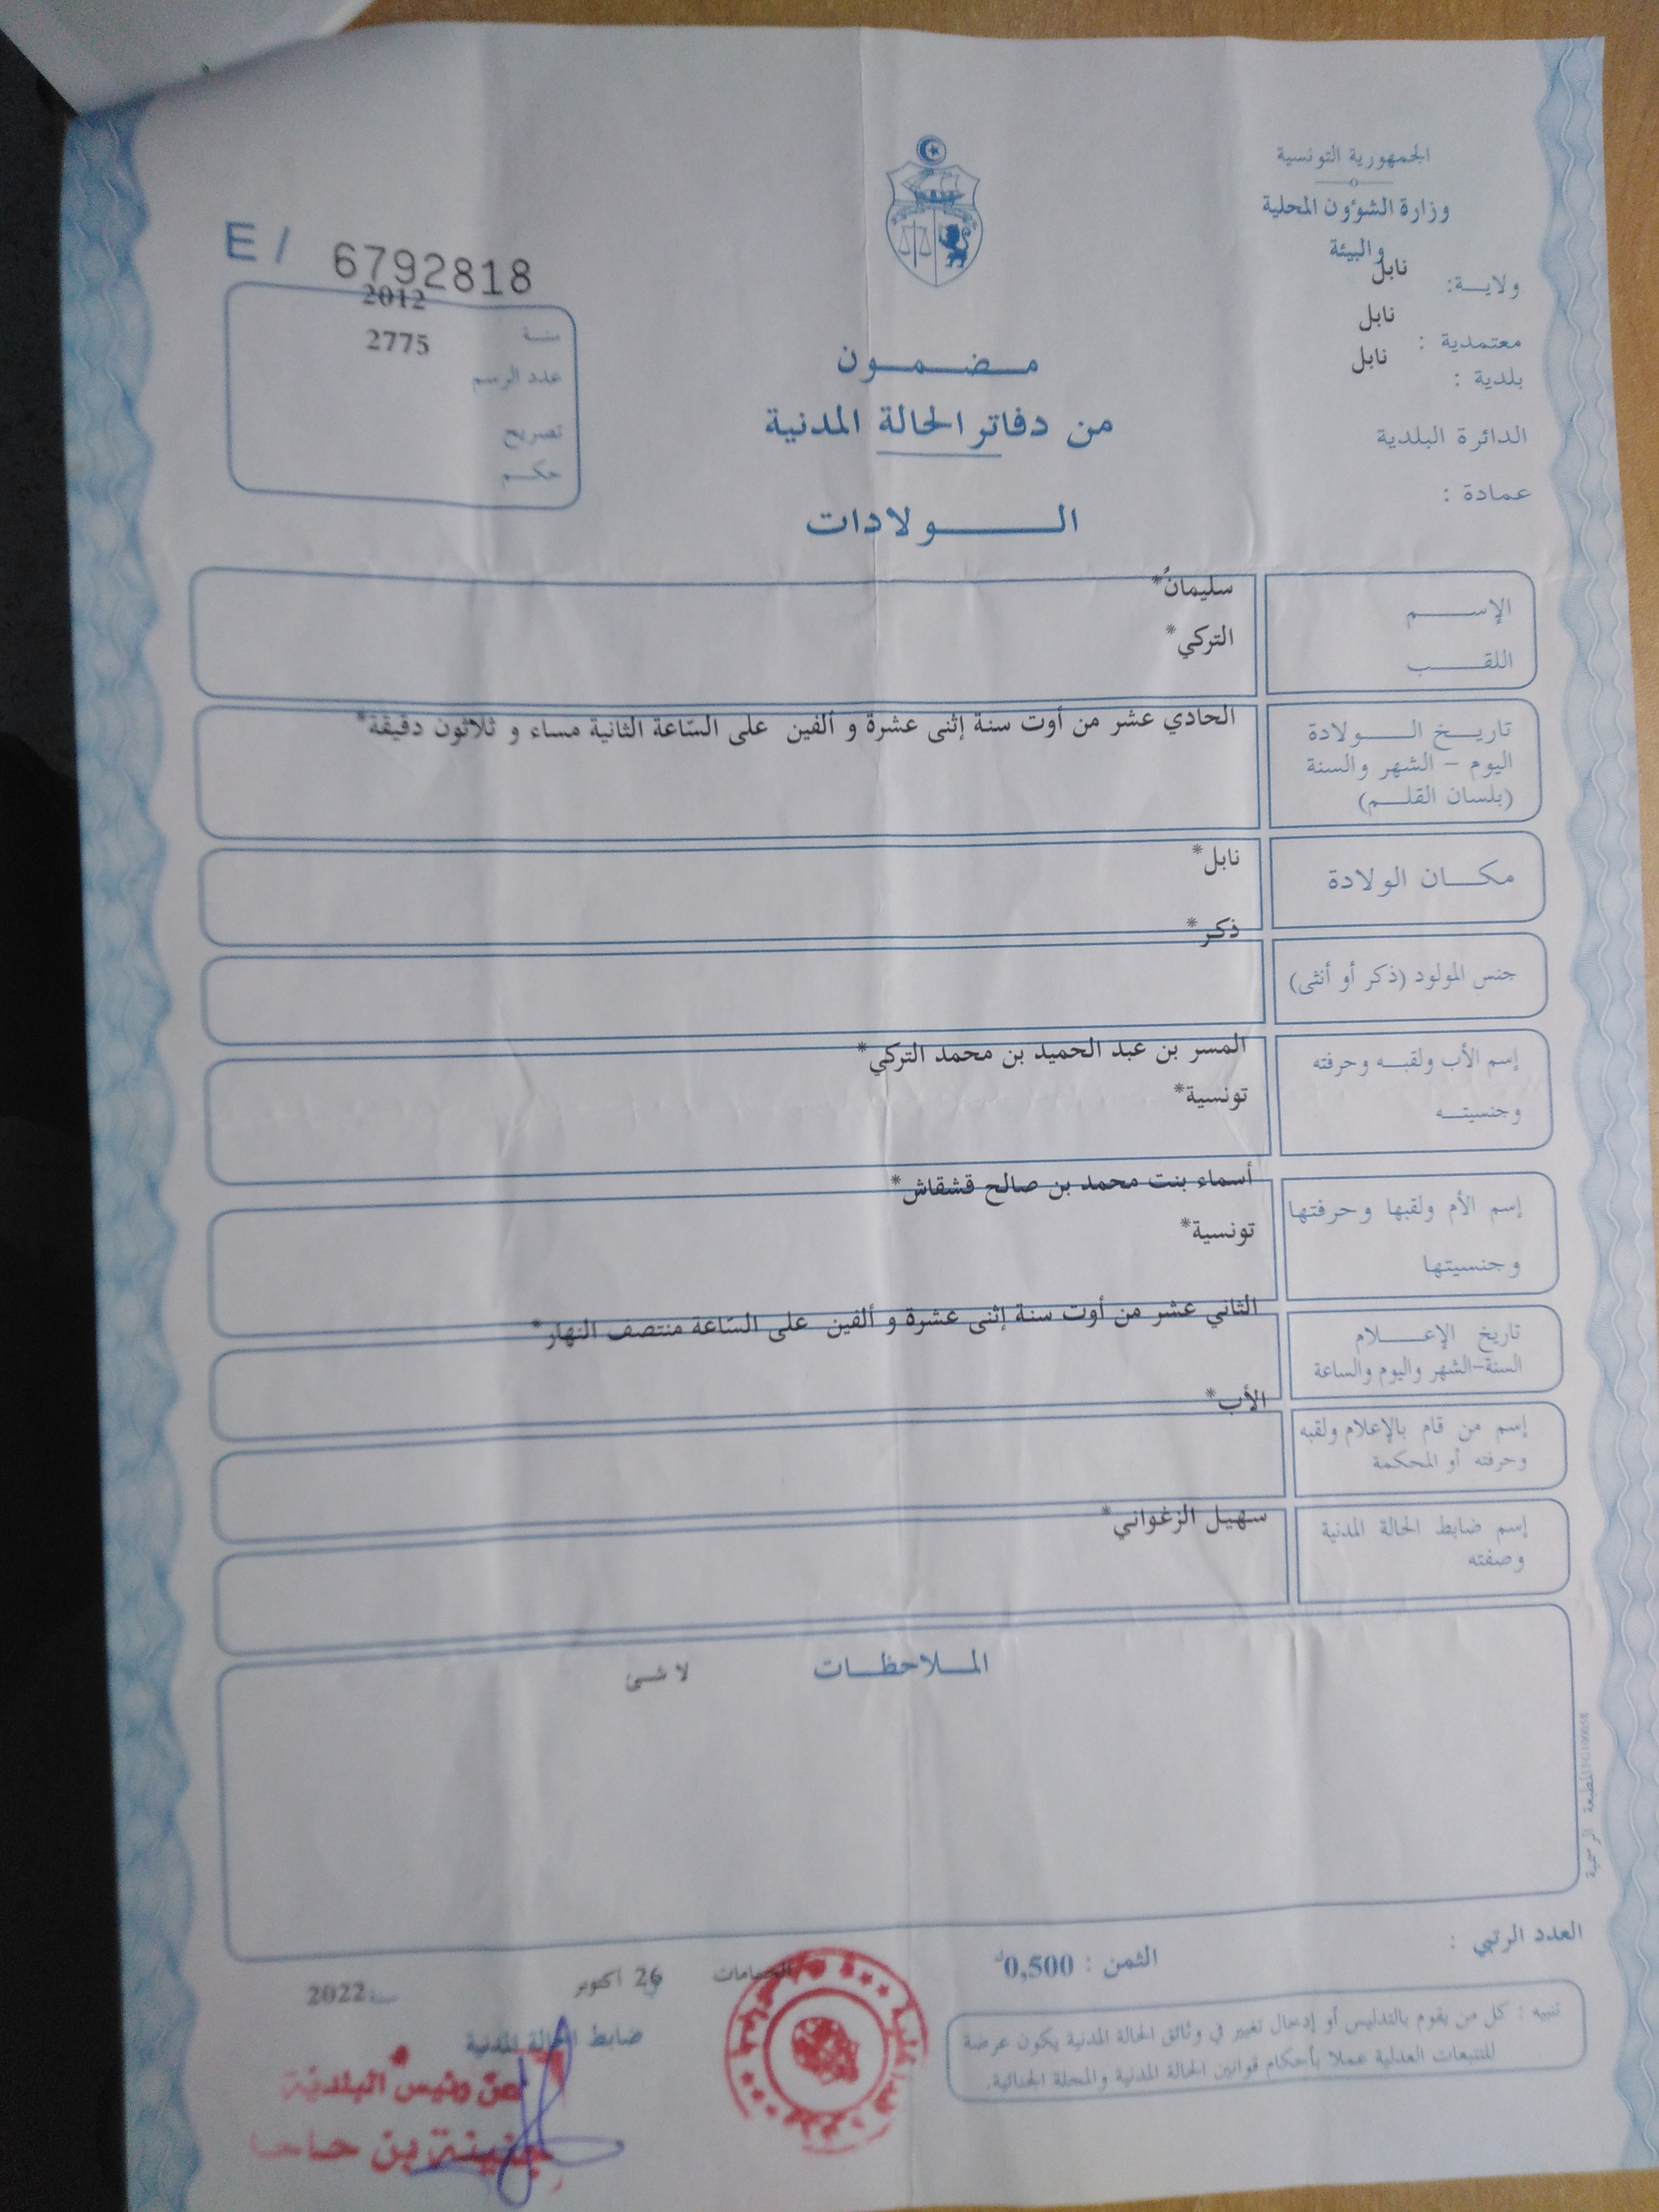 الجمهورية التونسية
وزارة الشؤون المحلية
والبيئة
ولايـــة: نابل
معتمدية : نابل
بلدية : نابل
الدائرة البلدية
عمادة :
E / 6792818
سنـــة 2012
عدد الرسم 2775
تصريح
حكـــم
مـــضـــمـــون
من دفاتر الحالة المدنية
الـــــولادات
الإســـــم سليمانُ*
اللقـــــب التركي*
تاريـــخ الـــــولادة الحادي عشر من أوت سنة إثنى عشرة و ألفين على السّاعة الثانية مساء و ثلاثون دقيقة*
اليوم – الشهر والسنة
(بلسان القلـــم)
مكـــان الولادة نابل*
جنس المولود (ذكر أو أنثى) ذكر*
إسم الأب ولقبـــه وحرفته المسر بن عبد الحميد بن محمد التركي*
وجنسيتـــه تونسية*
إسم الأم ولقبها وحرفتها أسماء بنت محمد بن صالح قشقاش*
وجنسيتها تونسية*
تاريخ الإعـــــلام الثاني عشر من أوت سنة إثنى عشرة و ألفين على السّاعة منتصف النهار*
السنة-الشهر واليوم والساعة
إسم من قام بالإعلام ولقبه الأب*
وحرفته أو المحكمة
إسم ضابط الحالة المدنية سهيل الزغواني*
وصفته
المـــلاحظـــات لا شىء
المطبعة الرسمية
العدد الرتبي :
الثمن : 0,500د
الحمامات 26 أكتوبر سنة 2022
ضابط الحالة المدنية
عن رئيس البلدية
بن
تنبيه : كل من يقوم بالتدليس أو إدخال تغيير في وثائق الحالة المدنية يكون عرضة
للتتبعات العدلية عملا بأحكام قوانين الحالة المدنية والمجلة الجنائية.